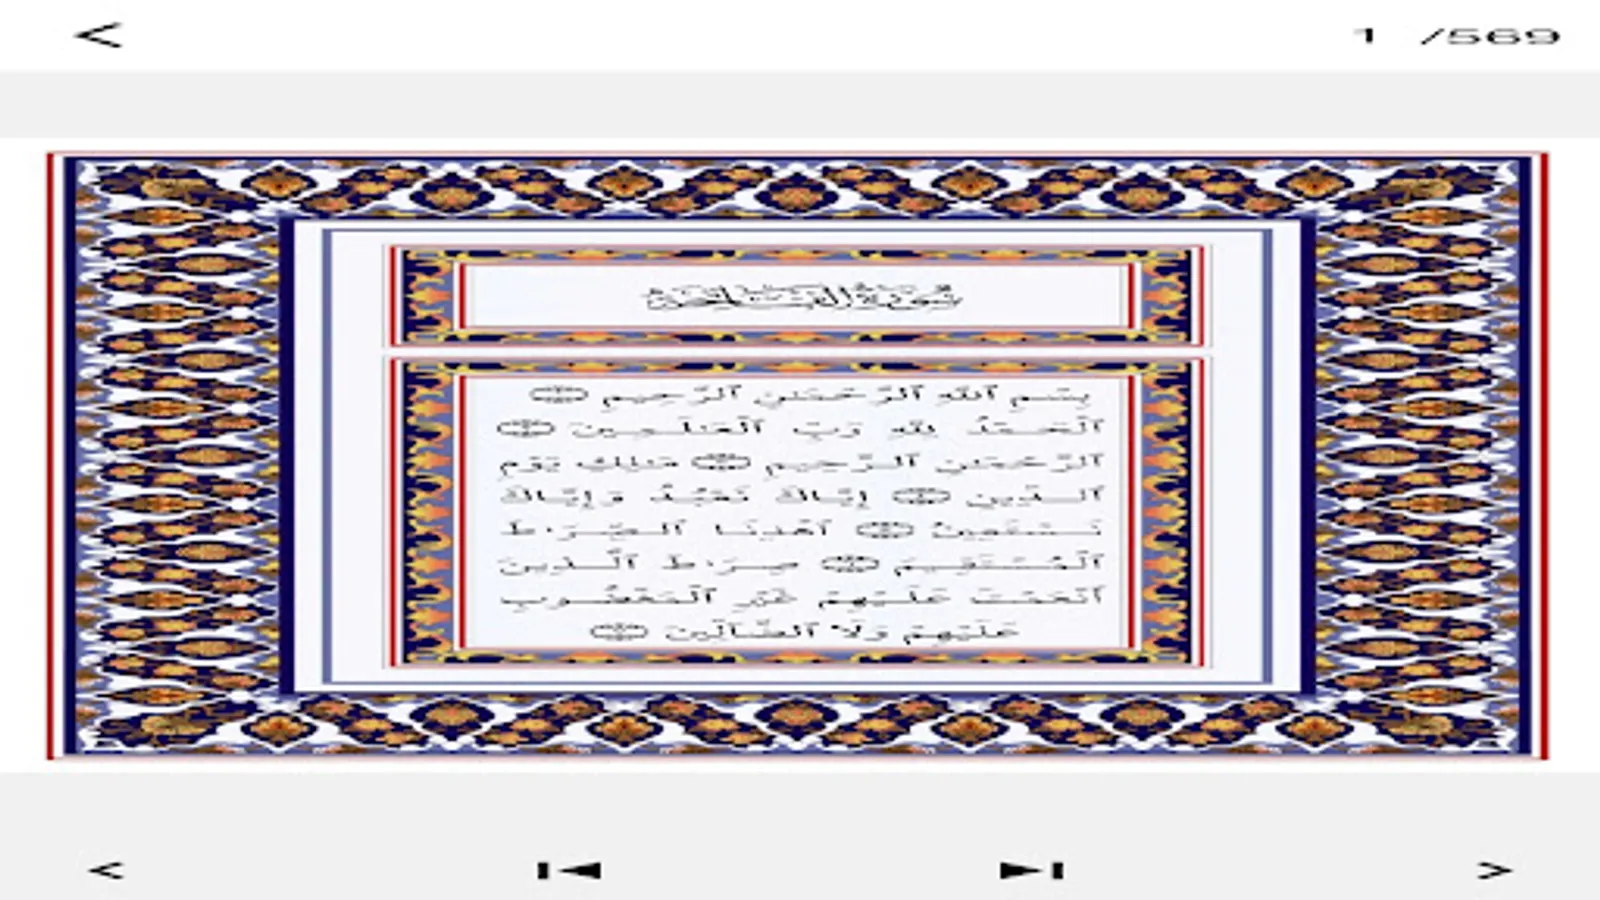 < 1 /569
سُورَةُ الفَاتِحَة
بِسْمِ ٱللَّهِ ٱلرَّحْمَـٰنِ ٱلرَّحِيمِ
ٱلْحَمْدُ لِلَّهِ رَبِّ ٱلْعَـٰلَمِينَ
ٱلرَّحْمَـٰنِ ٱلرَّحِيمِ مَـٰلِكِ يَوْمِ
ٱلدِّينِ إِيَّاكَ نَعْبُدُ وَإِيَّاكَ
نَسْتَعِينُ ٱهْدِنَا ٱلصِّرَٰطَ
ٱلْمُسْتَقِيمَ صِرَٰطَ ٱلَّذِينَ
أَنْعَمْتَ عَلَيْهِمْ غَيْرِ ٱلْمَغْضُوبِ
عَلَيْهِمْ وَلَا ٱلضَّآلِّينَ